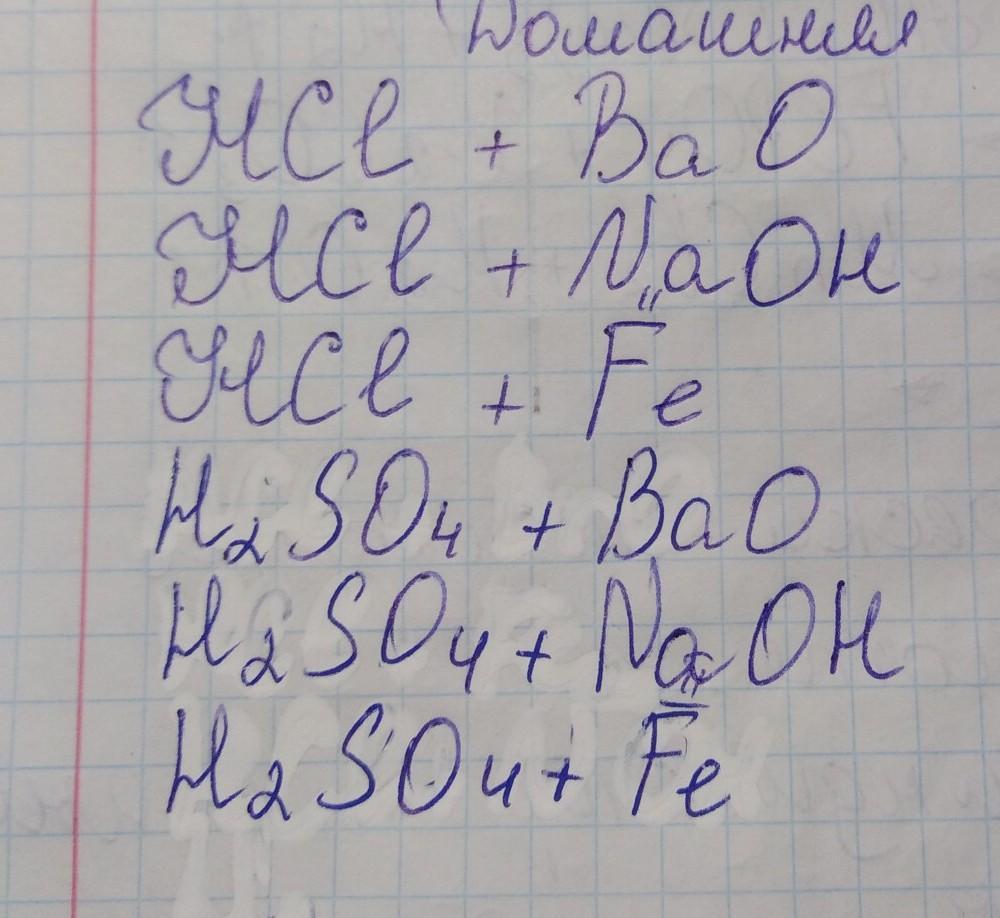 Домашняя
HCl + BaO
HCl + NaOH
HCl + Fe
H₂SO₄ + BaO
H₂SO₄ + NaOH
H₂SO₄ + Fe